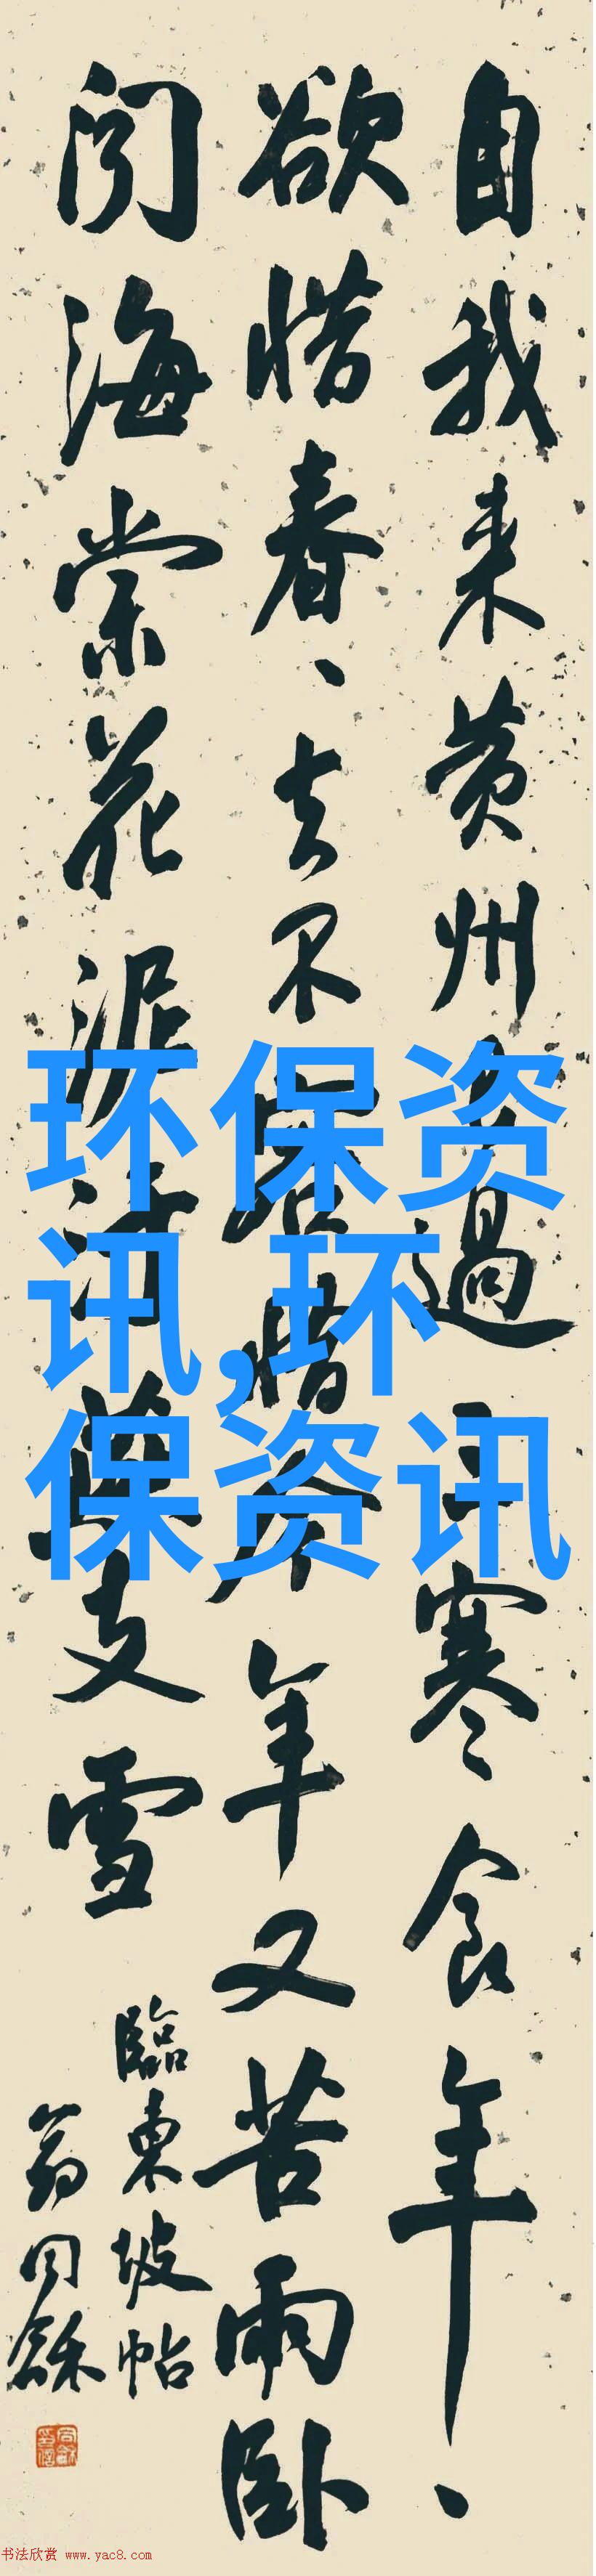 自我来黄州過寒食年、
欲惜春、去不容惜今年又苦雨卧
闻海棠花泥汙燕支雪
臨東坡帖
翁同龢
环保资
讯,环
保资讯
书法欣赏 www.yac8.com